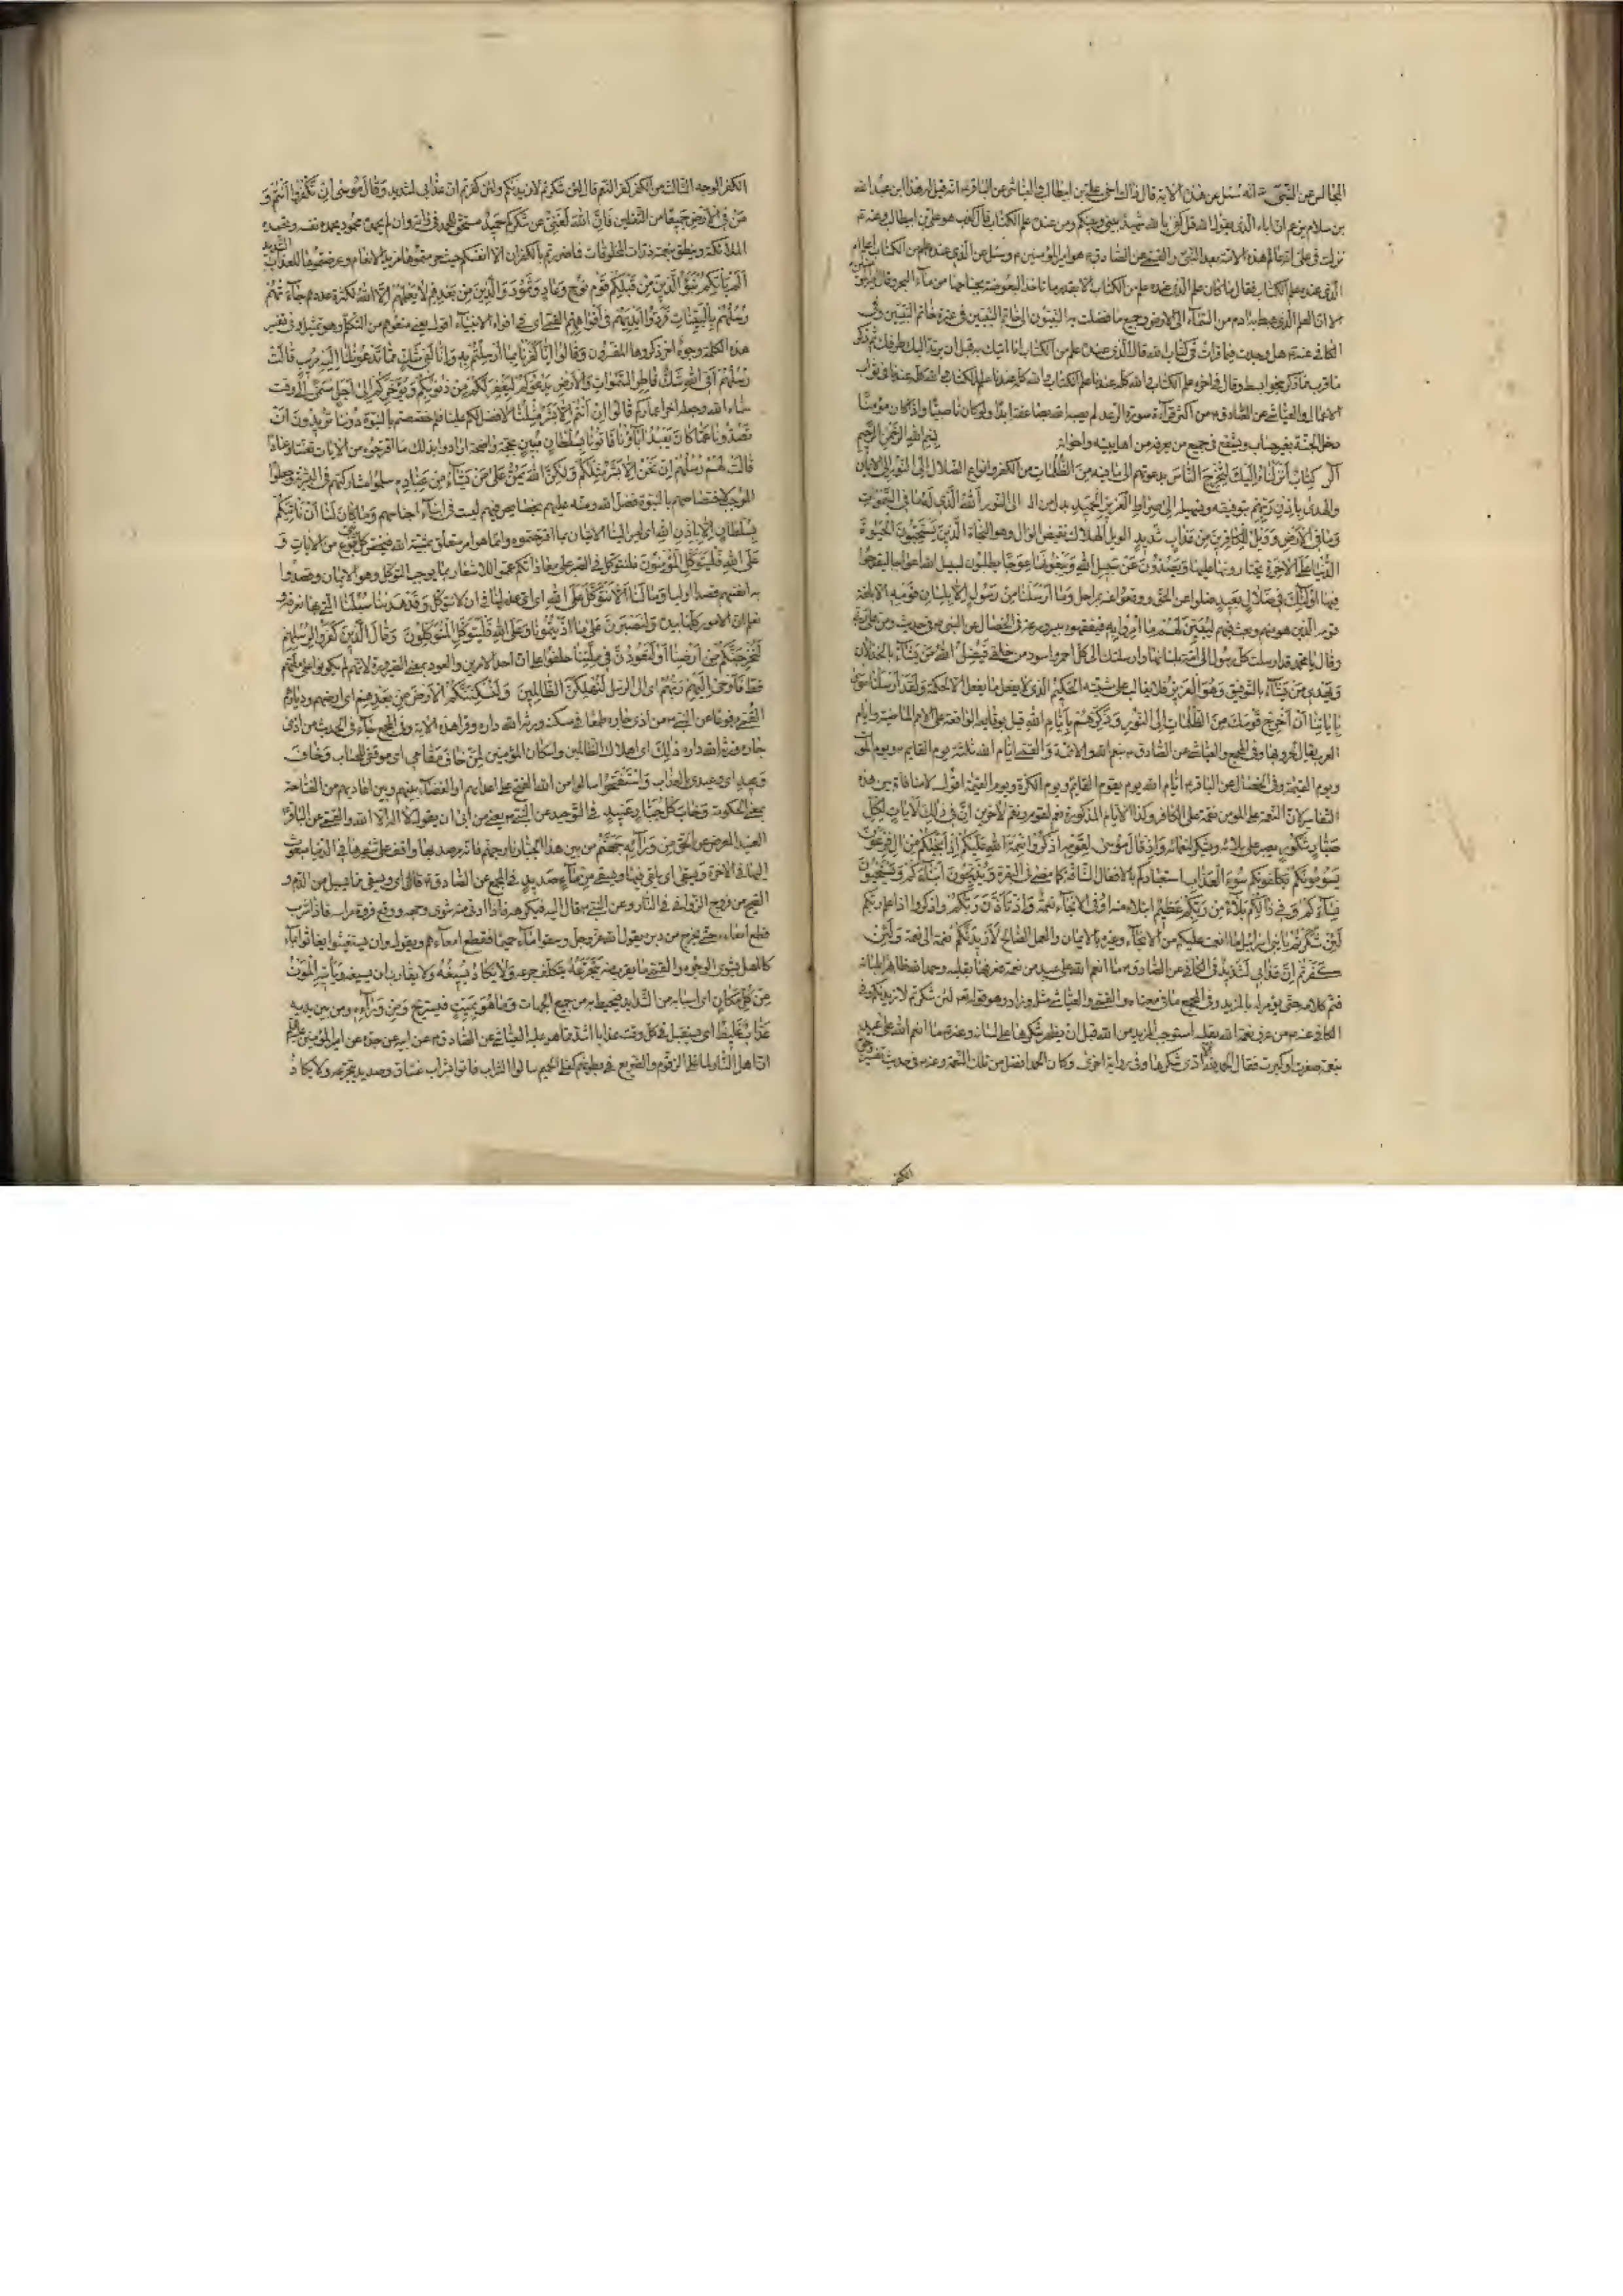 المجالس عن النبي انه سئل عن هذه الاية قال ذاك اخي علي بن ابيطالب والعياشي عن الباقر انه قيل له هذا ابن عبد الله
بن سلام يزعم ان اباه الذي يقول الله قل كفى بالله شهيدا بيني وبينكم ومن عنده علم الكتاب قال كذب هو علي بن ابيطالب وعنه
نزلت في علي انه عالم هذه الامة بعد النبي والقمي عن الصادق هو امير المؤمنين وسئل عن الذي عنده علم من الكتاب اعلم ام
الذي عنده علم الكتاب فقال ما كان علم الذي عنده علم من الكتاب الا بقدر ما تاخذ البعوضة بجناحها من ماء البحر وقال
الا ان العلم الذي هبط به ادم من السماء الى الارض وجميع ما فضلت به النبيون الى خاتم النبيين في عترة خاتم النبيين وفي
الكافي عنه هل وجدت فيما قرات في كتاب الله قال الذي عنده علم من الكتاب انا اتيك به قبل ان يرتد اليك طرفك ثم ذكر
ما قرب مما ذكر وقال في اخره علم الكتاب والله كله عندنا علم الكتاب والله كله عندنا في ثواب
الاعمال والعياشي عن الصادق من اكثر قراءة سورة الرعد لم يصبه الله بصاعقة ابدا ولو كان ناصبيا واذا كان مؤمنا
دخل الجنة بغير حساب ويشفع في جميع من يعرفه من اهل بيته واخوانه بسم الله الرحمن الرحيم
الر كتاب انزلناه اليك لتخرج الناس بدعوتهم الى ما فيه من الظلمات من الكفر وانواع الضلال الى النور الى الايمان
والهدى باذن ربهم بتوفيقه وتسهيله الى صراط العزيز الحميد بدل من الى النور الله الذي له ما في السموات
وما في الارض وويل للكافرين من عذاب شديد الويل الهلاك نقيض الوال وهو النجاة الذين يستحبون الحيوة
الدنيا على الاخرة يختارونها عليها ويصدون عن سبيل الله ويبغونها عوجا ويطلبون لسبيل الله اعوجاجا ليقدحوا
فيها اولئك في ضلال بعيد ضلوا عن الحق ووقعوا عنه بمراحل وما ارسلنا من رسول الا بلسان قومه الا بلغة
قومه الذين هو منهم وبعث فيهم ليبين لهم ما امروا به فيفقهوه بيسر وسرعة في الخصال عن النبي في حديث ومن علي ربي
وقال يا محمد قد ارسلت كل رسول الى امته بلسانها وارسلتك الى كل احمر واسود من خلقي فيضل الله من يشاء بالخذلان
ويهدي من يشاء بالتوفيق وهو العزيز فلا يغالب على مشيته الحكيم الذي لا يفعل ما يفعل الا لحكمة ولقد ارسلنا موسى
باياتنا ان اخرج قومك من الظلمات الى النور وذكرهم بايام الله قيل بوقايعه الواقعة على الامم الماضية وايام
العرب يقال لحروبها وفي المجمع والعياشي عن الصادق بنعم الله والائه والقمي ايام الله ثلثة يوم القايم ويوم الموت
ويوم القيمة وفي الخصال عن الباقر ايام الله يوم يقوم القائم ويوم الكرة ويوم القيمة اقول لا منافاة بين هذه
التفاسير لان النعمة على المؤمن نقمة على الكافر وكذا الايام المذكورة نعم لقوم ونقم لاخرين ان في ذلك لايات لكل
صبار شكور يصبر على بلائه ويشكر لنعمائه واذ قال موسى لقومه اذكروا نعمة الله عليكم اذ انجيكم من ال فرعون
يسومونكم يكلفونكم سوء العذاب استعبادكم بالافعال الشاقة كما مضى في البقرة ويذبحون ابناءكم ويستحيون
نساءكم وفي ذلكم بلاء من ربكم عظيم ابتلاء منه او في الانجاء نعمة واذ تاذن ربكم واذكروا اذ اعلم ربكم
لئن شكرتم يا بني اسرائيل ما انعمت عليكم من الانجاء وغيره بالايمان والعمل الصالح لازيدنكم نعمة الى نعمة ولئن
كفرتم ان عذابي لشديد في الكافي عن الصادق ما انعم الله على عبد من نعمة فعرفها بقلبه وحمد الله ظاهرا بلسانه
فتم كلامه حتى يؤمر له بالمزيد وفي المجمع ما في معناه والقمي والعياشي مثله وزاد وهو قوله لئن شكرتم لازيدنكم وفي
الكافي عنه من عرف نعمة الله بقلبه استوجب المزيد من الله قبل ان يظهر شكرها على لسانه وعنه ما انعم الله على عبد
بنعمة صغرت او كبرت فقال الحمد لله الا ادى شكرها وفي رواية اخرى وكان الحمد افضل من تلك النعمة وعنه في حديث تفسير وجوه
الكفر
الكفر الوجه الثالث من الكفر كفر النعم قال لئن شكرتم لازيدنكم ولئن كفرتم ان عذابي لشديد وقال موسى ان تكفروا انتم و
من في الارض جميعا من الثقلين فان الله لغني عن شكركم حميد مستحق للحمد في ذاته وان لم يحمده محمود يحمده نفسه وتحمده
الملائكة وينطق بنعمته ذرات المخلوقات فما ضررتم بالكفران الا انفسكم حيث حرمتموها مزيد الانعام وعرضتموها للعذاب الشديد
الم ياتكم نبؤ الذين من قبلكم قوم نوح وعاد وثمود والذين من بعدهم لا يعلمهم الا الله لكثرة عددهم جاءتهم
رسلهم بالبينات فردوا ايديهم في افواههم القمي اي في افواه الانبياء اقول يعني منعوهم من التكلم وهو تمثيل وفي تفسير
هذه الكلمة وجوه اخر ذكروها المفسرون وقالوا انا كفرنا بما ارسلتم به وانا لفي شك مما تدعوننا اليه مريب قالت
رسلهم افي الله شك فاطر السموات والارض يدعوكم ليغفر لكم من ذنوبكم ويؤخركم الى اجل مسمى الى وقت
سماه الله وجعله اخر اعماركم قالوا ان انتم الا بشر مثلنا لا فضل لكم علينا فلم خصصتم بالنبوة دوننا تريدون ان
تصدونا عما كان يعبد اباؤنا فاتونا بسلطان مبين بحجة واضحة ارادوا بذلك ما اقترحوه من الايات تعنتا وعنادا
قالت لهم رسلهم ان نحن الا بشر مثلكم ولكن الله يمن على من يشاء من عباده سلموا مشاركتهم في البشرية وجعلوا
الموجب لاختصاصهم بالنبوة فضل الله ومنه عليهم بخصايص فيهم ليست في ابناء اجناسهم وما كان لنا ان ناتيكم
بسلطان الا باذن الله اي ليس الينا الاتيان بما اقترحتموه وانما هو امر متعلق بمشية الله فيخص كل نبي بنوع من الايات و
على الله فليتوكل المؤمنون فلنتوكل في الصبر على معاداتكم عمموا للاشعار بما يوجب التوكل وهو الايمان وقصدوا
به انفسهم قصدا اوليا وما لنا الا نتوكل على الله اي اي عذر لنا في ان لا نتوكل وقد هدينا سبلنا التي بها نعرفه و
نعلم ان الامور كلها بيده ولنصبرن على ما اذيتمونا وعلى الله فليتوكل المتوكلون وقال الذين كفروا لرسلهم
لنخرجنكم من ارضنا او لتعودن في ملتنا حلفوا على ان احد الامرين والعود بمعنى الصيرورة لانهم لم يكونوا على ملتهم
قط فاوحى اليهم ربهم اي الى الرسل لنهلكن الظالمين ولنسكننكم الارض من بعدهم اي ارضهم وديارهم
القمي مرفوعا عن النبي من اذى جاره طمعا في مسكنه ورثه الله داره وقرا هذه الاية وفي المجمع جاء في الحديث من اذى
جاره ورثه الله داره ذلك اي اهلاك الظالمين واسكان المؤمنين لمن خاف مقامي اي موقفي للحساب وخاف
وعيد اي وعيدي بالعذاب واستفتحوا سالوا من الله الفتح على اعدائهم او القضاء بينهم وبين اعاديهم من الفتاحة
بمعنى الحكومة وخاب كل جبار عنيد في التوحيد عن النبي يعني من ابى ان يقول لا اله الا الله والقمي عن الباقر
العنيد المعرض عن الحق من ورائه جهنم من بين هذا الجبار نار جهنم فانه مرصد بها واقف على شفيرها في الدنيا مبعوث
اليها في الاخرة ويسقى اي يلقى فيها ويسقى من ماء صديد في المجمع عن الصادق قال اي ويسقى مما يسيل من الدم و
القيح من فروج الزواني في النار وعن النبي قال يقرب اليه فيكرهه فاذا ادني منه شوى وجهه ووقع فروة راسه فاذا شرب
قطع امعاءه حتى يخرج من دبره يقول الله عز وجل وسقوا ماء حميما فقطع امعاءهم ويقول وان يستغيثوا يغاثوا بماء
كالمهل يشوي الوجوه والقمي ما يقرب منه يتجرعه يتكلف جرعه ولا يكاد يسيغه ولا يقارب ان يسيغه وياتيه الموت
من كل مكان اي اسبابه من الشدايد فتحيط به من جميع الجهات وما هو بميت فيستريح ومن ورائه ومن بين يديه
عذاب غليظ اي يستقبل في كل وقت عذابا اشد مما هو عليه العياشي عن الصادق عن ابيه عن جده عن امير المؤمنين
ان اهل النار لما غلى الزقوم والضريع في بطونهم كغلي الحميم سالوا الشراب فاتوا بشراب غساق وصديد يتجرعه ولا يكاد